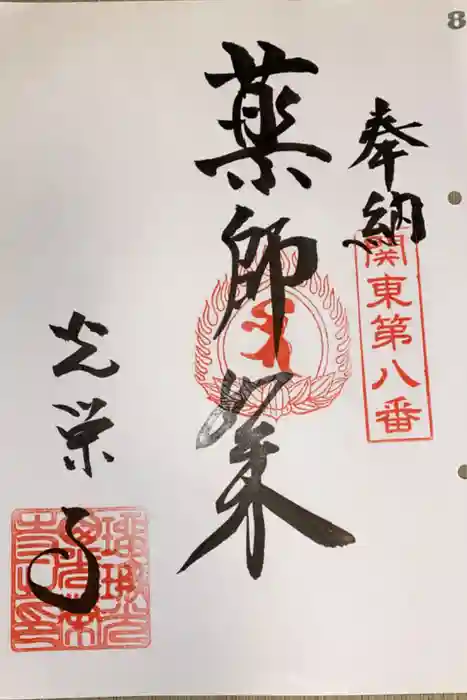 8
奉納
関東第八番
薬師如来
光栄寺